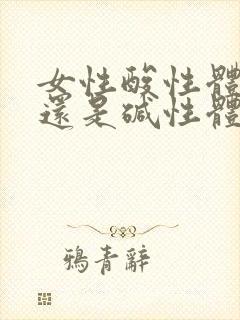 女性酸性體
還是碱性體
鴉青辭